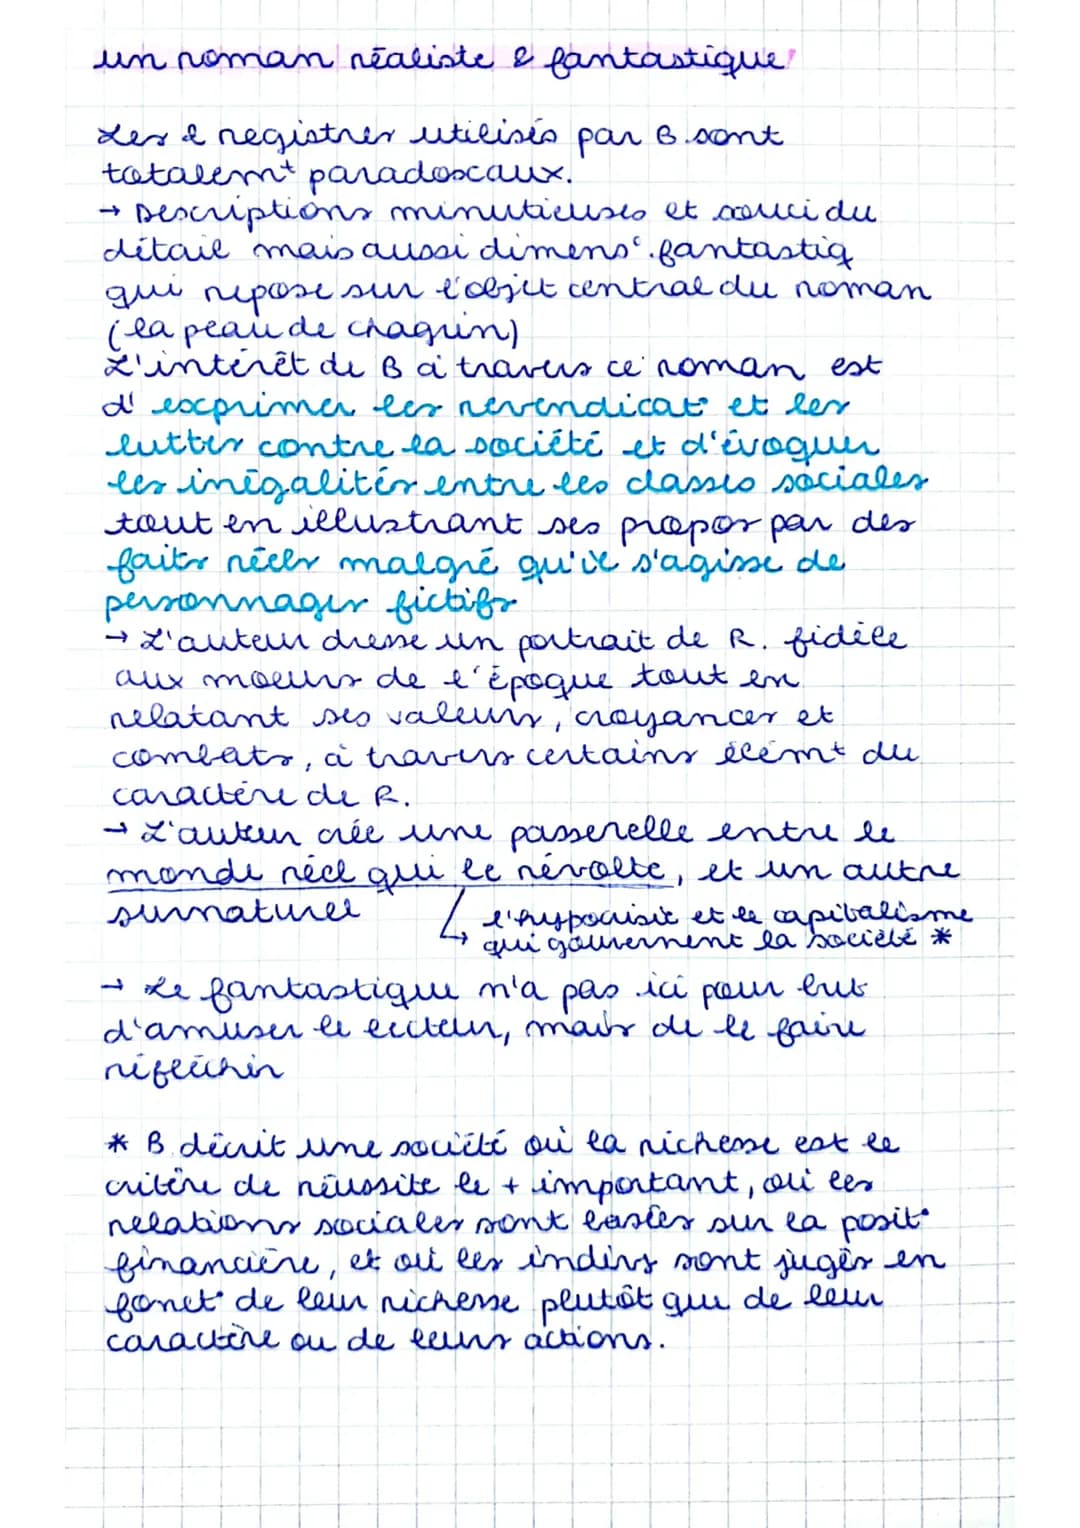 un roman réaliste & fantastique
Les 2 registres utilisés par B. sont
totalemt paradoxaux.
→ Descriptions minutieuses et souci du
détail mais aussi dimens°. fantastiq
qui repose sur l'objet central du roman
(la peau de chagrin)
L'intérêt de B à travers ce roman est
d'exprimer les revendicat° et les
luttes contre la société et d'évoquer
les inégalités entre les classes sociales
tout en illustrant ses propos par des
faits réels malgré qu'il s'agisse de
personnages fictifs
→ L'auteur dresse un portrait de R. fidèle
aux moeurs de l'époque tout en
relatant ses valeurs, croyances et
combats, à travers certains élémt du
caractère de R.
→ L'auteur crée une passerelle entre le
monde réel qui le révolte, et un autre
surnaturel
↳ l'hypocrisie et le capitalisme
qui gouvernent la société *
→ Le fantastique n'a pas ici pour but
d'amuser le lecteur, mais de le faire
réfléchir
* B. décrit une société où la richesse est le
critère de réussite le + important, où les
relations sociales sont basées sur la posit°
financière, et où les indivs sont jugés en
fonct° de leur richesse plutôt que de leur
caractère ou de leurs actions.